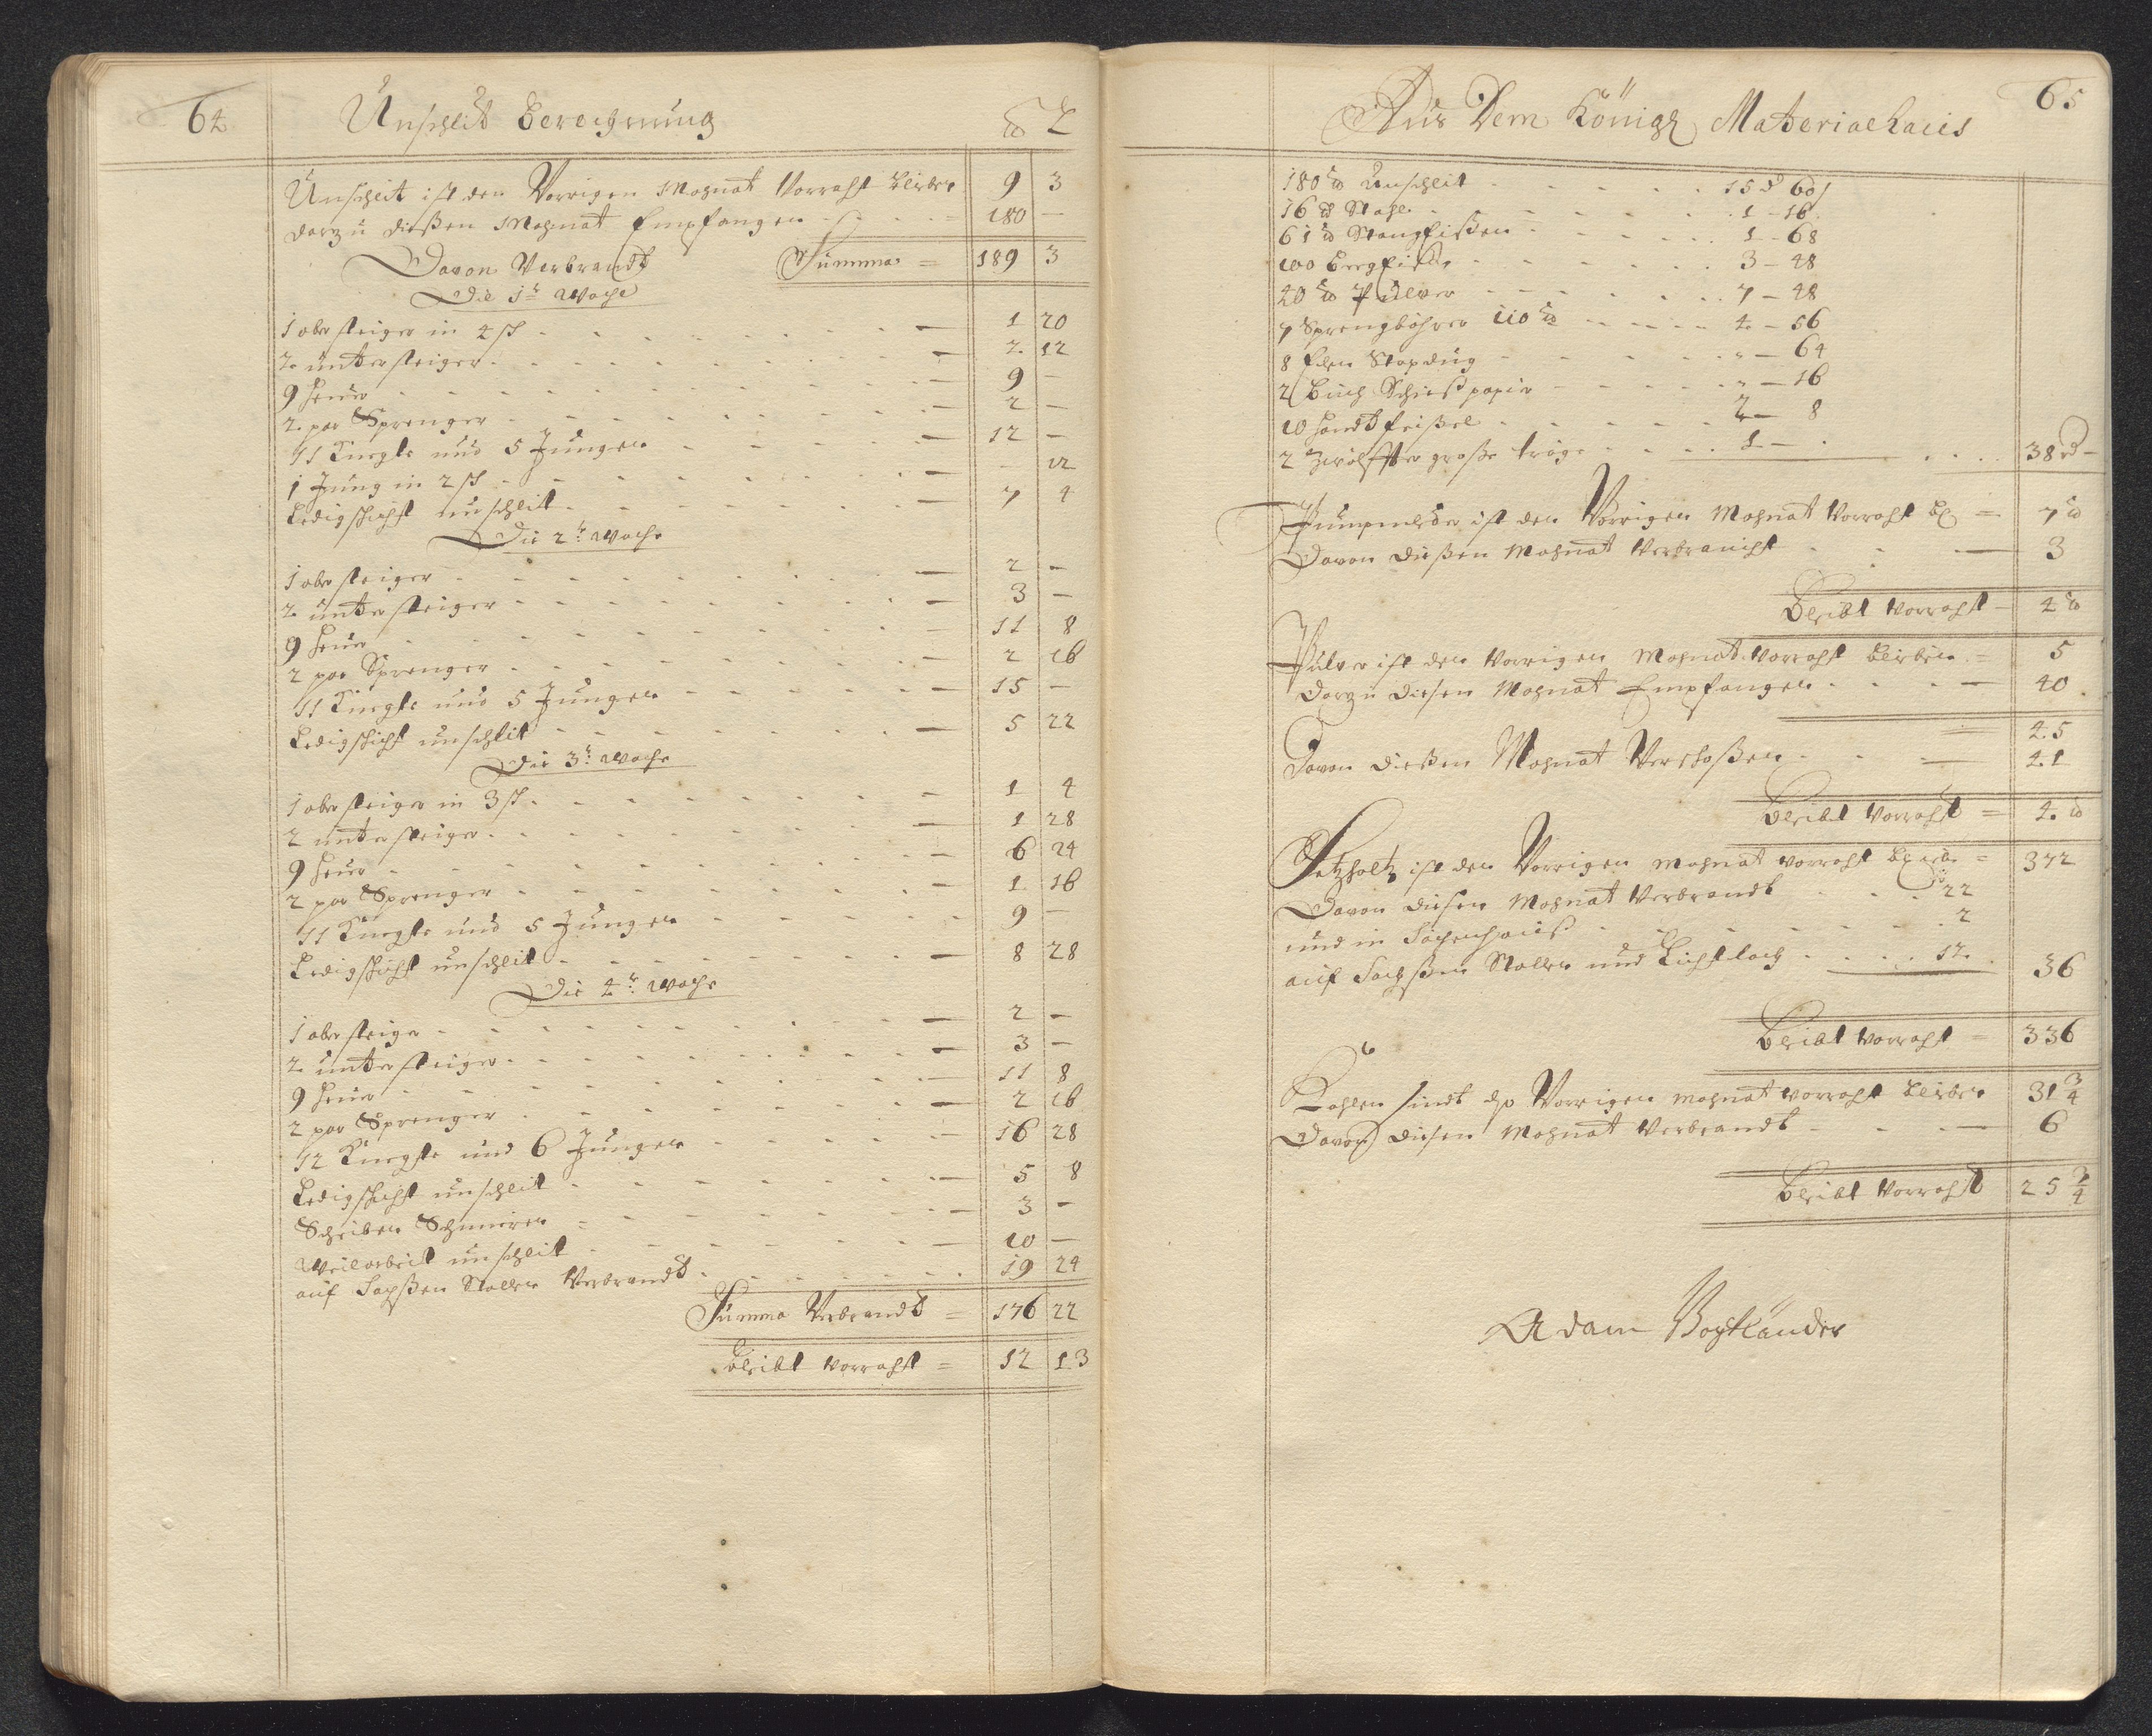 64
Unschlid berechnung ℔ L
Unschleit ist den Vorrigen Mohnat Vorraht blieben 9 3
darzu dießen Mohnat Empfangen 180 —
Summa = 189 3
Davon Verbrandt
Die 1te Woche
1 obersteiger in 4 sch 1 20
2 untersteiger 2 12
9 heuer 9 —
2 par Sprenger 2 —
11 Knechte und 5 Jungen 12 —
1 Jung in 2 sch — 12
Ledigschicht unschleit 7 4
Die 2te Woche
1 obersteiger 2 —
2 untersteiger 3 —
9 heuer 11 8
2 par Sprenger 2 16
11 Knechte und 5 Jungen 15 —
Ledigschicht unschlit 5 22
Die 3te Woche
1 obersteiger in 3 sch 1 4
2 untersteiger 1 28
9 heuer 6 24
2 par Sprenger 1 16
11 Knechte und 5 Jungen 9 —
Ledigschicht unschleit 8 28
Die 4te Woche
1 obersteiger 2 —
2 untersteiger 3 —
9 heuer 11 8
2 par Sprenger 2 16
12 Knechte und 6 Jungen 16 28
Ledigschicht unschleit 5 8
Scheiben Schmiren 3 —
Weilarbeit unschleit 10 —
auf Sachßen Stollen Verbrandt 19 24
Summa Verbrandt = 176 22
bleibt Vorraht = 12 13
65
Aus Dem Königl Materialhaus
180 ℔ Unschleit 15 d 60 s
16 ℔ Stahl 1 – 16
61 ℔ Stangeißen 1 – 68
100 Bergeißen 3 – 48
40 ℔ Pulver 7 – 48
7 Sprengbohrer 110 ℔ 4 – 56
8 Elen 64
2 Buch Schießpapir 16
10 handtfeißel 2 – 8
2 Zwölffter große tröge 1 –
38 rd –
Pumpenleder ist den Vorrigen Mohnat Vorraht bl = 7 ℔
Davon dießen Mohnat Verbraucht 3
Bleibt Vorraht – 4 ℔
Pulver ist den Vorrigen Mohnat Vorraht blieben = 5
darzu diesen Mohnat Empfangen 40
45
Davon dießen Mohnat Verschoßen 41
Bleibt Vorraht = 4 ℔
Setzholtz ist den Vorrigen mohnat Vorraht blieben = 372
Davon diesen Mohnat Verbrandt 22
und in Sachenhaus 2
auf Sachßen Stollen und Lichtloch 12
36
Bleibt Vorraht = 336
Kohlen sindt den Vorrigen mohnat Vorraht blieben 31 3/4
Davon diesen Mohnat Verbrandt 6
Bleibt Vorraht 25 3/4
Adam Vogtländer